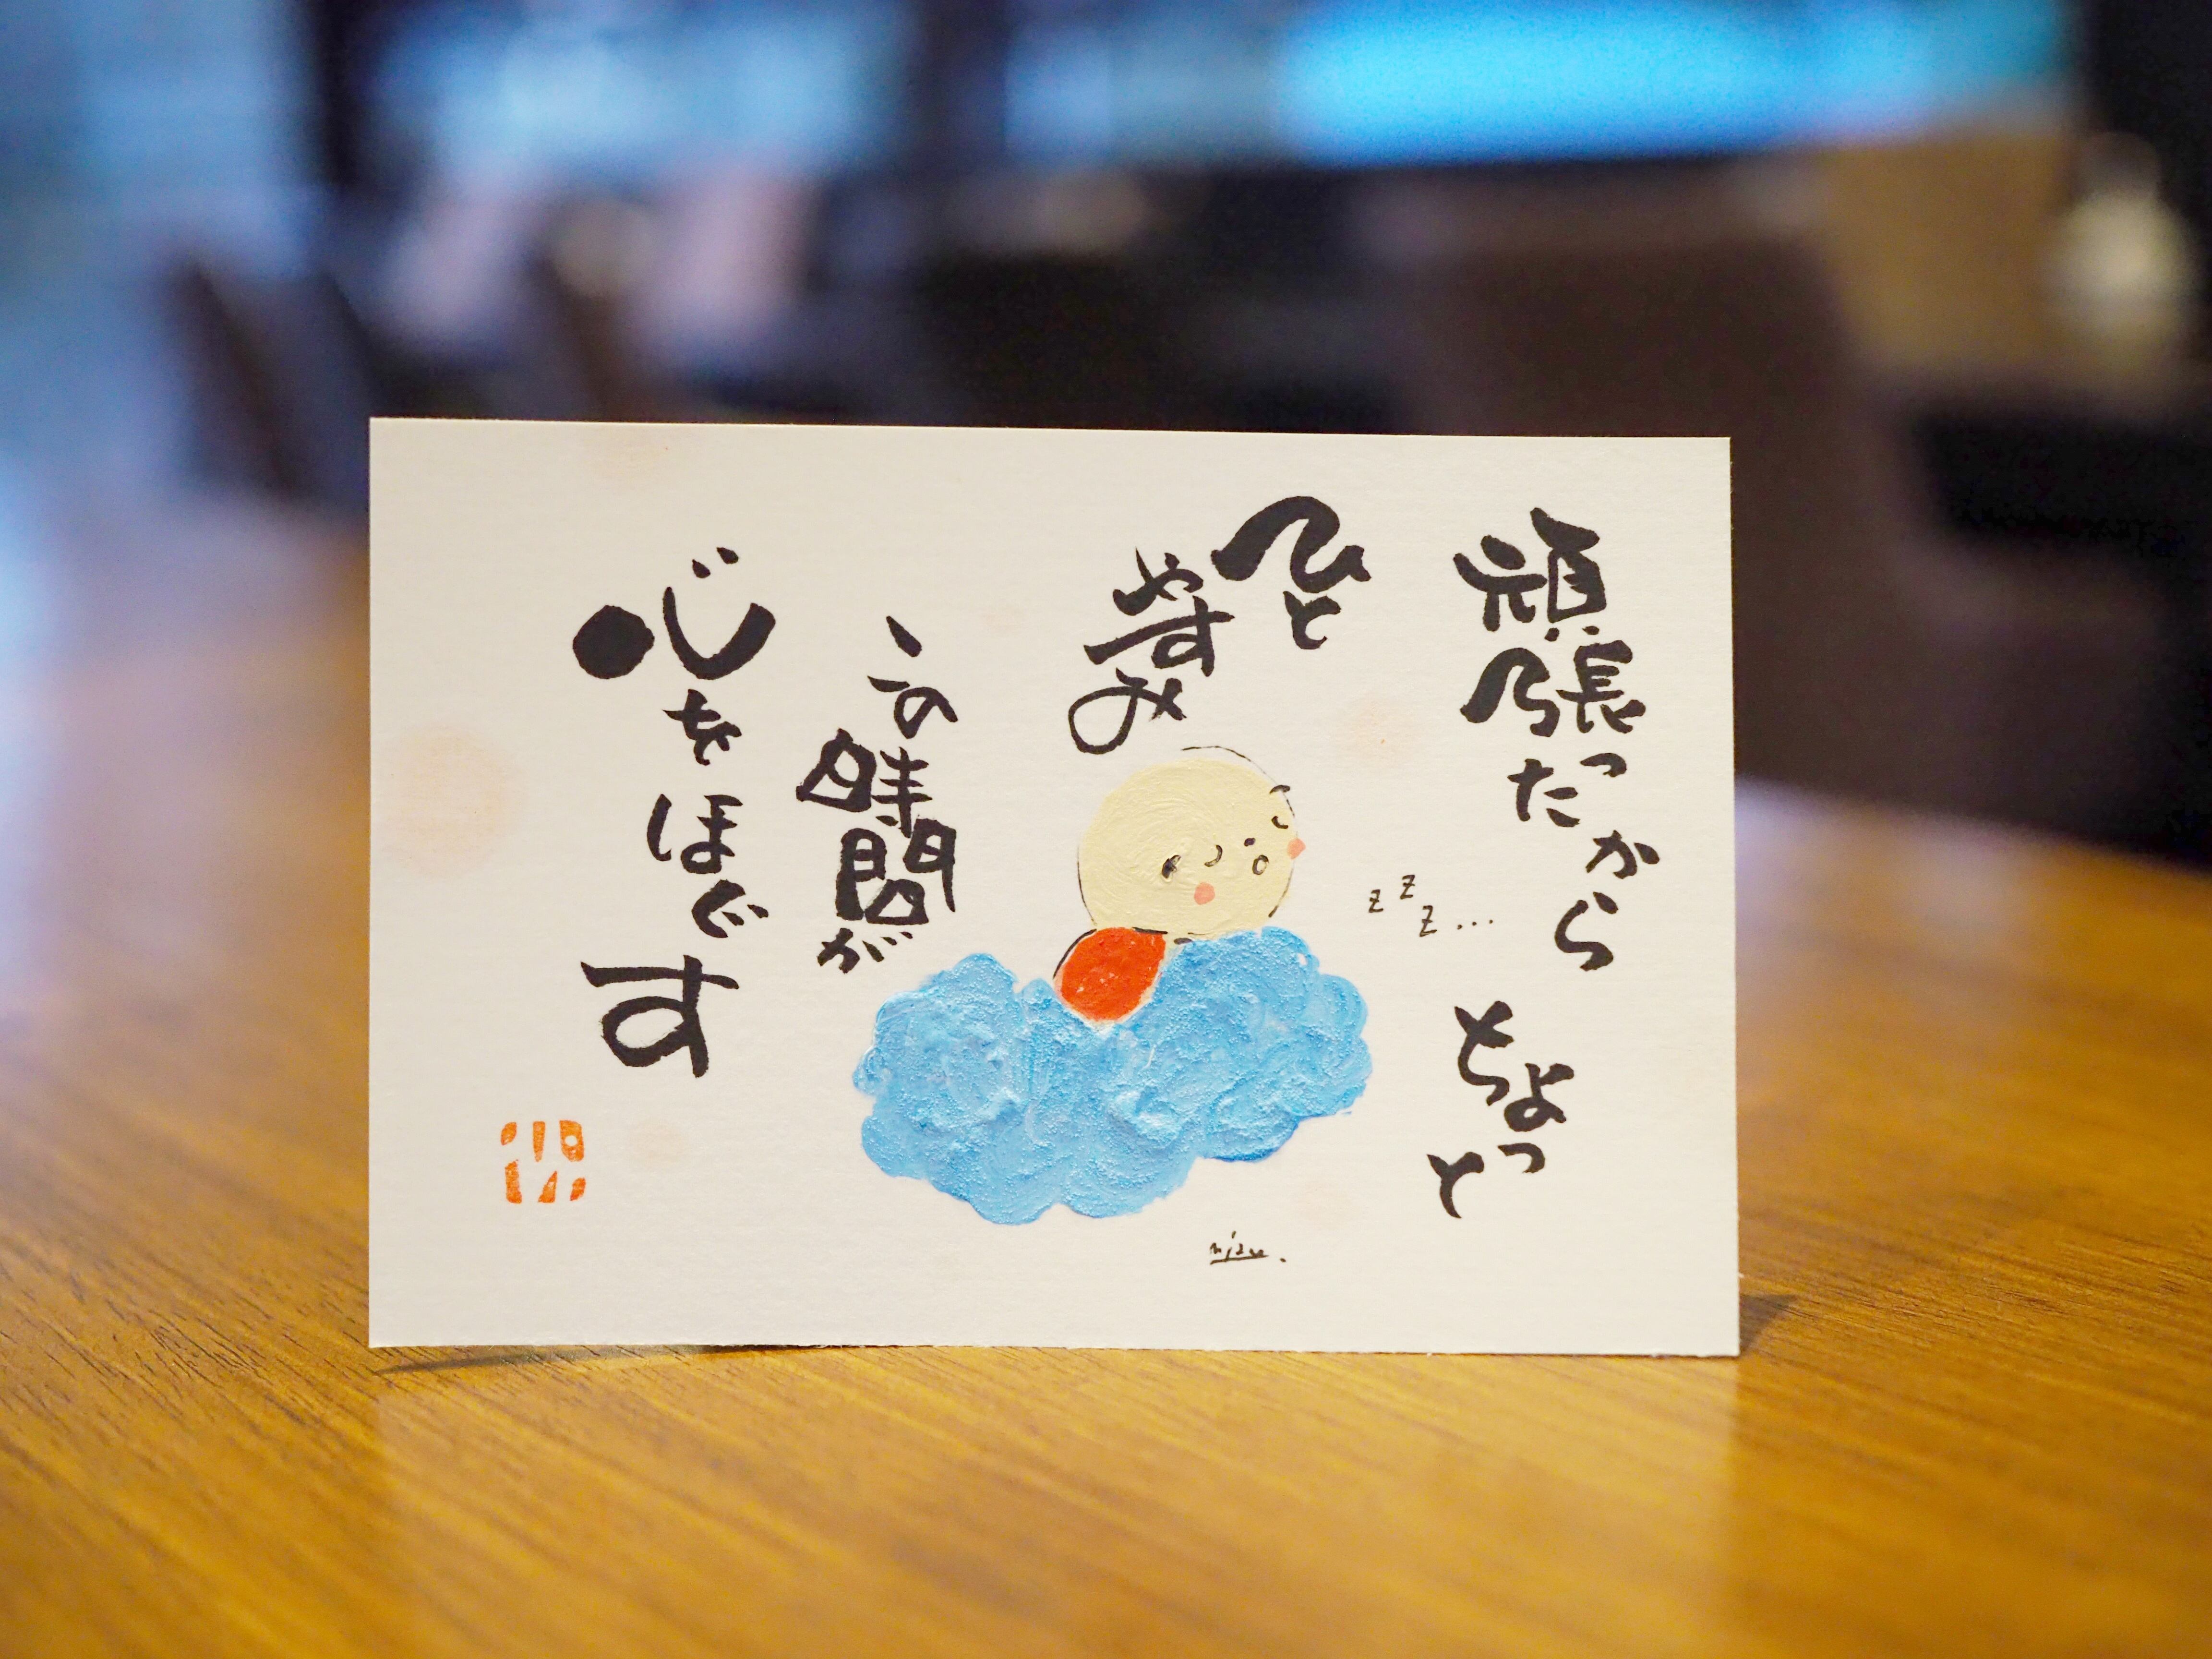 頑張ったから
ちょっと
ひと
やすみ
この時間が
心をほぐす
zzz...